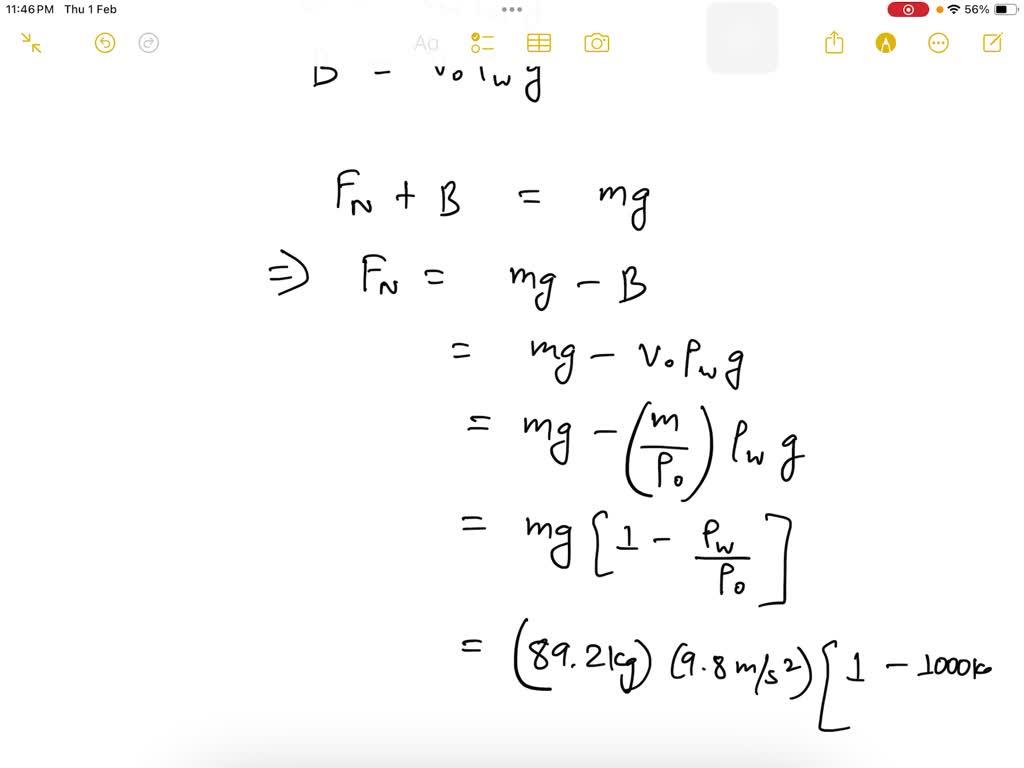 11:46 PM Thu 1 Feb
56%
Aa
F_N + B = mg
⇒ F_N = mg - B
= mg - V₀ρ_w g
= mg - (m/ρ₀) ρ_w g
= mg [1 - ρ_w/ρ₀]
= (89.2kg) (9.8 m/s²) [1 - 1000 k